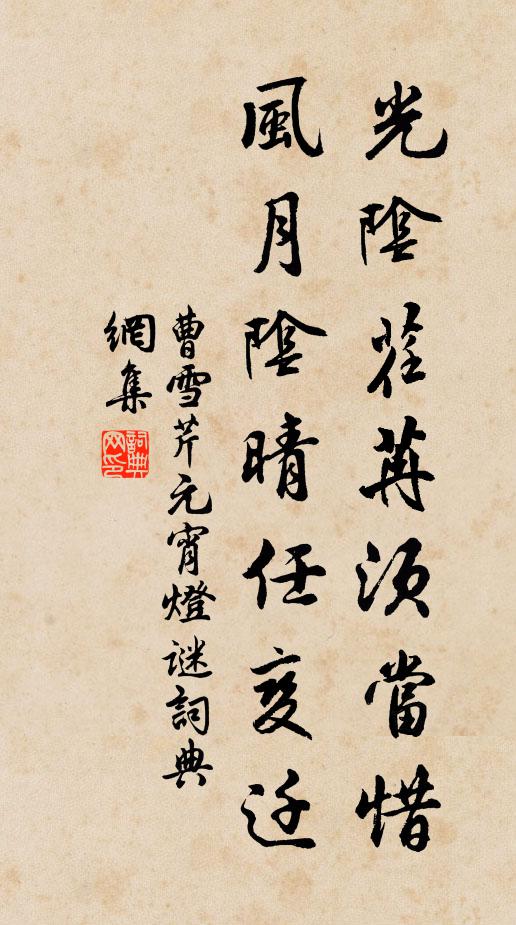 光陰荏苒須當惜
風月陰晴任变迁
曹雪芹元宵燈謎詞典
網集
詞典网印